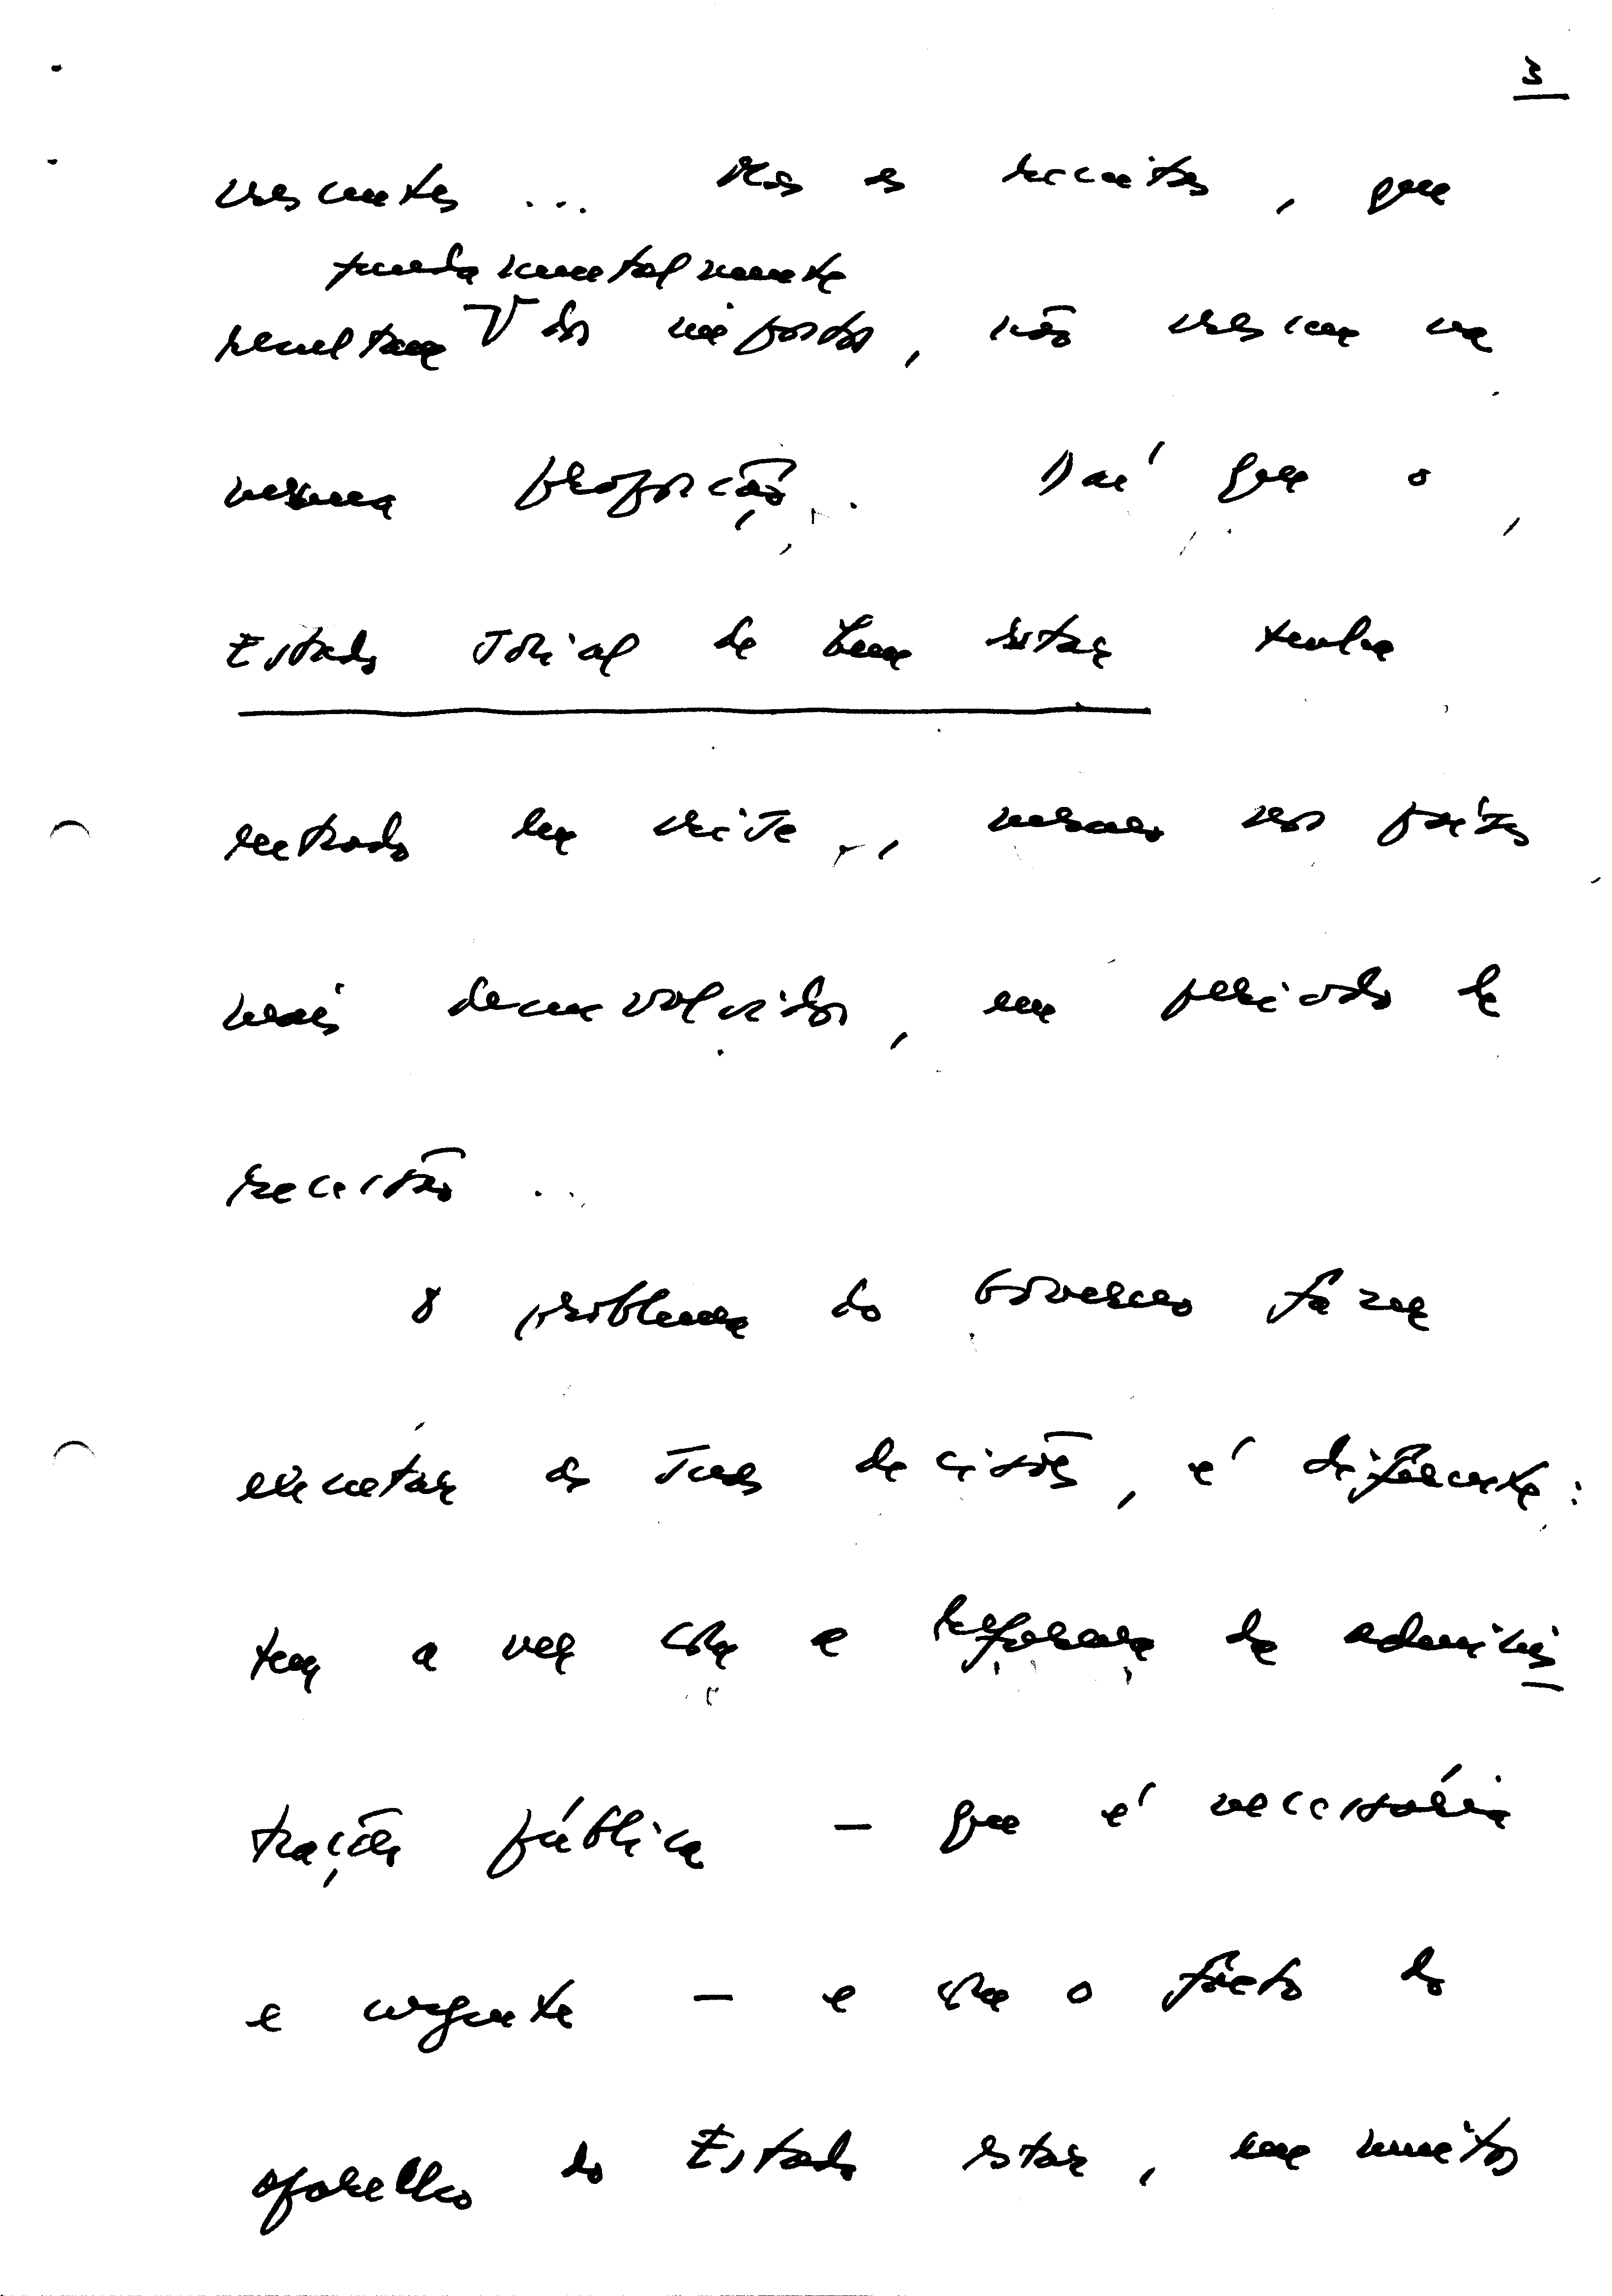 3
crescentes ... Mas as receitas, que
fundamentalmente
resultam V dos impostos, não crescem na
mesma proporção. Daí que o
Estado Social de bem estar tenha
entrado em crise, mesmo nos países
mais desenvolvidos, em período de
recessão ...
O problema do Governo fazer
executar as suas decisões, é diferente:
tem a ver com a reforma da adminis
tração pública — que é necessária
e urgente — e com o facto do
aparelho do Estado estar, em muitos